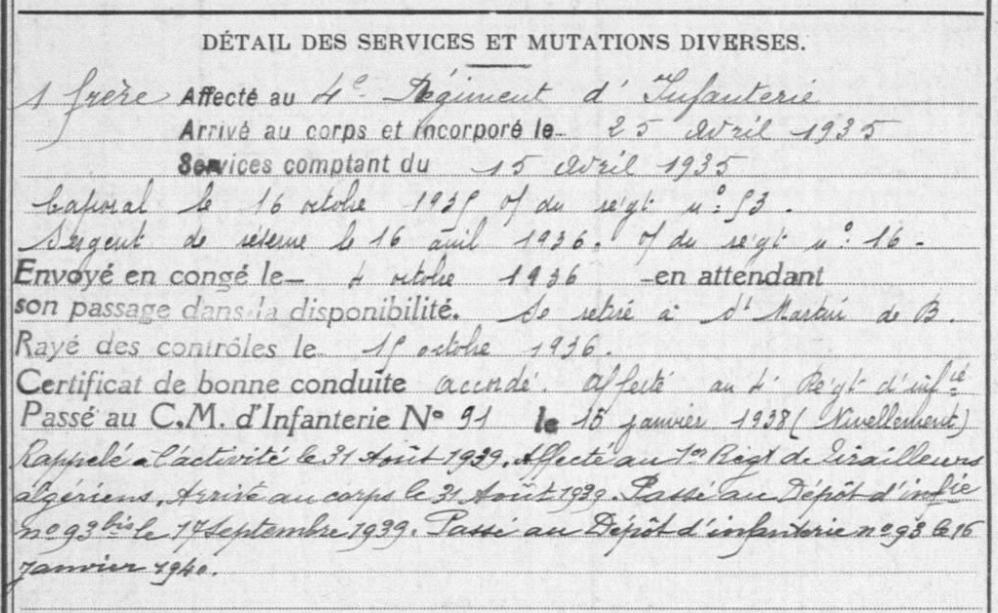 DÉTAIL DES SERVICES ET MUTATIONS DIVERSES.
1 frère Affecté au 4e Régiment d'Infanterie
Arrivé au corps et incorporé le 25 Avril 1935
Services comptant du 15 Avril 1935
Caporal le 16 octobre 1935 o/ du régt n° 53.
Sergent de réserve le 16 avril 1936. o/ du régt n° 16.
Envoyé en congé le 4 octobre 1936 en attendant
son passage dans la disponibilité. Se retire à St Martin de B.
Rayé des contrôles le 15 octobre 1936.
Certificat de bonne conduite accordé. Affecté au 4e Régt d'infie
Passé au C.M. d'Infanterie N° 91 le 15 janvier 1938 (Nivellement)
Rappelé à l'activité le 31 Août 1939. Affecté au 1er Régt de Tirailleurs
algériens. Arrivé au corps le 31 Août 1939. Passé au Dépôt d'infie
n° 93 bis le 17 Septembre 1939. Passé au Dépôt d'infanterie n° 93 le 16
janvier 1940.